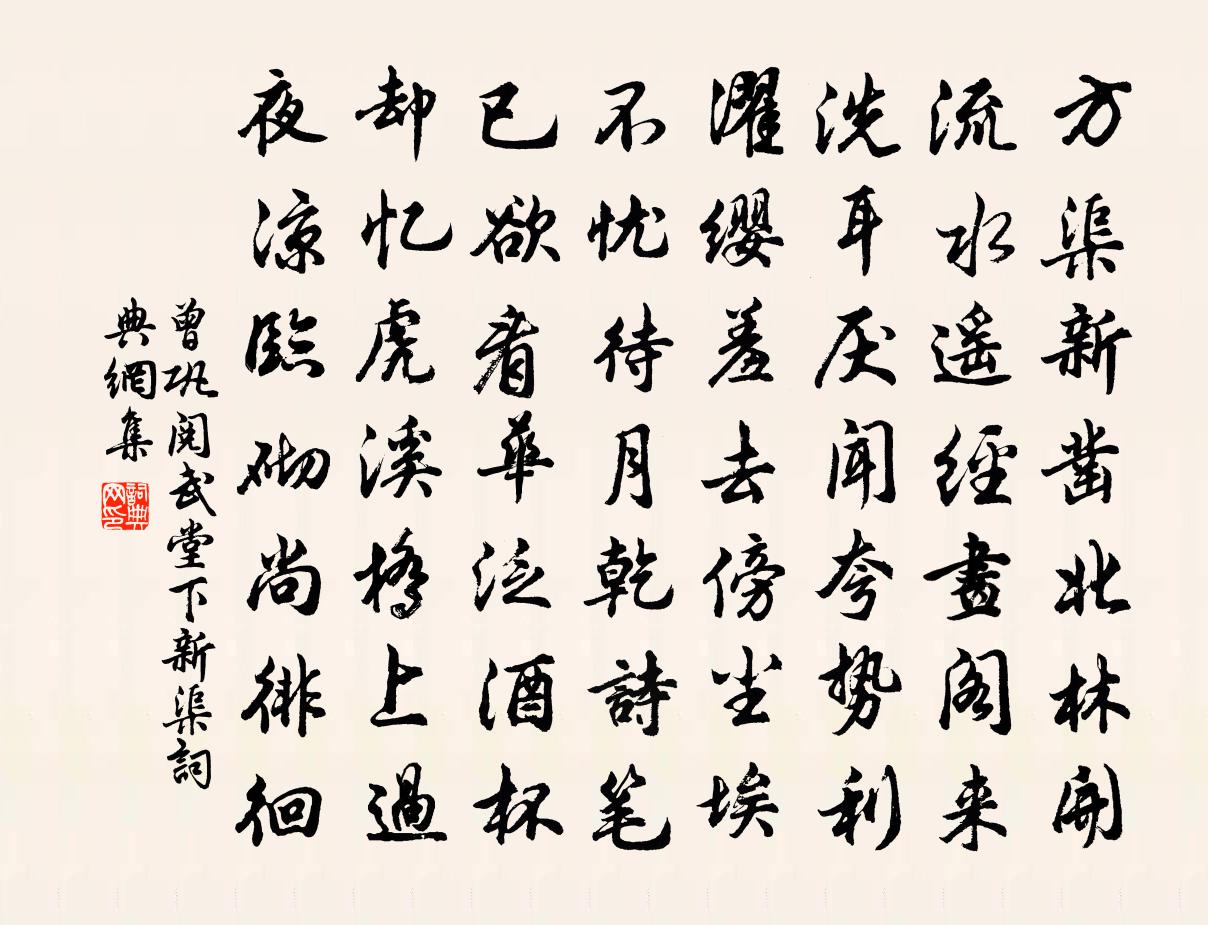 方渠新凿北林開
流水遥經畫阁来
洗耳厌聞夸势利
濯缨羞去傍尘埃
不忧待月乾詩笔
已欲看華泛酒杯
却忆虎溪橋上過
夜凉臨砌尚徘徊
曾巩阅武堂下新渠詞
典網集
詞典
网印